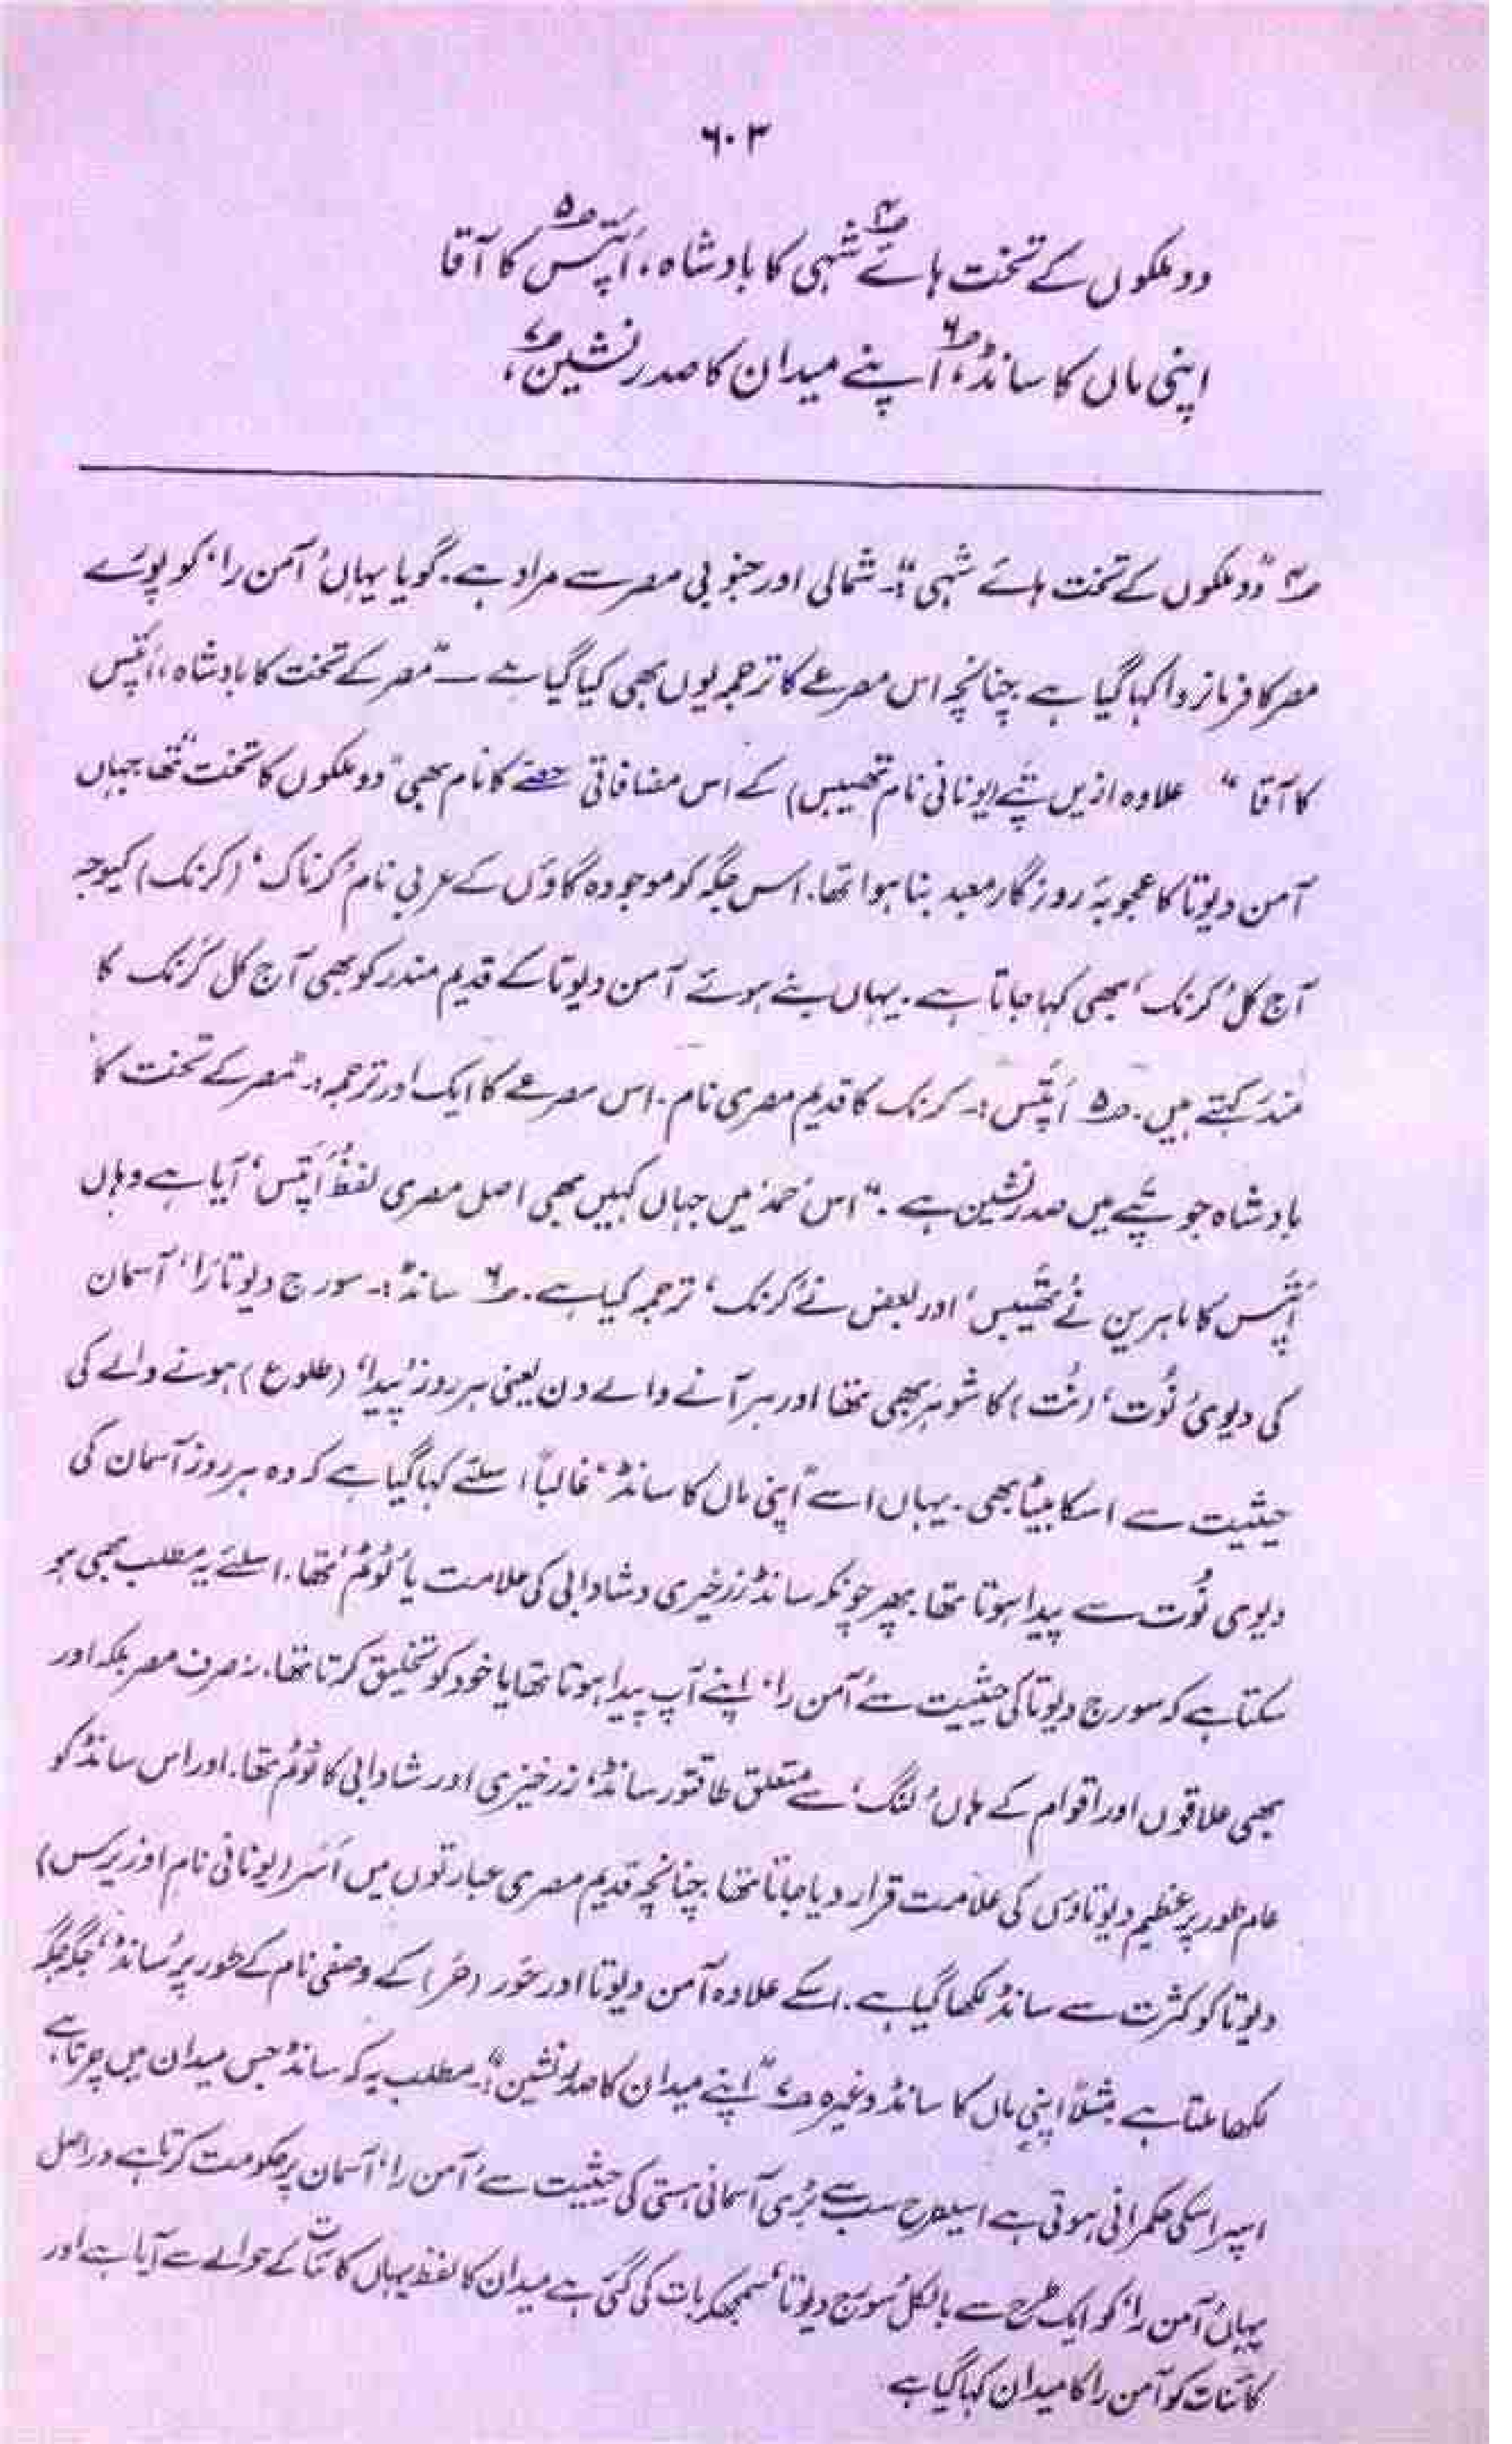 ۶۰۳
دو ملکوں کے تخت ہائے شہی ؎۴ کا بادشاہ، اَپَتِس ؎۵ کا آقا
اپنی ماں کا سانڈ ؎۶، اپنے میدان کا صدر نشین ؎۷،
؎۴ ”دو ملکوں کے تخت ہائے شہی“:۔ شمالی اور جنوبی مصر سے مراد ہے۔ گویا یہاں ’آمن را‘ کو پورے
مصر کا فرمانروا کہا گیا ہے چنانچہ اس مصرعے کا ترجمہ یوں بھی کیا گیا ہے — ”مصر کے تخت کا بادشاہ، اَپَتِس
کا آقا“ علاوہ ازیں تپے (یونانی نام تھیبس) کے اس مضافاتی حصے کا نام بھی ”دو ملکوں کا تخت“ تھا جہاں
آمن دیوتا کا عجوبۂ روزگار معبد بنا ہوا تھا۔ اس جگہ کو موجودہ گاؤں کے عربی نام ’کرناک‘ (کرنک) کیوجہ
آج کل ’کرنک‘ بھی کہا جاتا ہے۔ یہاں بنے ہوئے آمن دیوتا کے قدیم مندر کو بھی آج کل کرنک کا
مندر کہتے ہیں۔ ؎۵ اَپَتِس:۔ کرنک کا قدیم مصری نام۔ اس مصرعے کا ایک اور ترجمہ:۔ ”مصر کے تخت کا
بادشاہ جو تپے میں صدر نشین ہے۔“ اس ’حمد‘ میں جہاں کہیں بھی اصل مصری لفظ ’اَپَتِس‘ آیا ہے وہاں
اَپَتِس کا ماہرین نے ’تھیبس‘ اور بعض نے ’کرنک‘ ترجمہ کیا ہے۔ ؎۶ سانڈ:۔ سورج دیوتا ’را‘ آسمان
کی دیوی ’نُوت‘ (نُت) کا شوہر بھی تھا اور ہر آنے والے دن یعنی ہر روز ’پیدا‘ (طلوع) ہونے والے کی
حیثیت سے اسکا بیٹا بھی۔ یہاں اسے ”اپنی ماں کا سانڈ“ غالباً اسلئے کہا گیا ہے کہ وہ ہر روز آسمان کی
دیوی نُوت سے پیدا ہوتا تھا۔ پھر چونکہ سانڈ زرخیزی و شادابی کی علامت یا ’ٹوٹم‘ تھا۔ اسلئے یہ مطلب بھی ہو
سکتا ہے کہ سورج دیوتا کی حیثیت سے ’آمن را‘ اپنے آپ پیدا ہوتا تھا یا خود کو تخلیق کرتا تھا۔ نہ صرف مصر بلکہ اور
بھی علاقوں اور اقوام کے ہاں ’لنگ‘ سے متعلق طاقتور سانڈ، زرخیزی اور شادابی کا ٹوٹم تھا۔ اور اس سانڈ کو
عام طور پر عظیم دیوتاؤں کی علامت قرار دیا جاتا تھا چنانچہ قدیم مصری عبارتوں میں اَسَر (یونانی نام اوزیرس)
دیوتا کو کثرت سے سانڈ لکھا گیا ہے۔ اسکے علاوہ آمن دیوتا اور حَور (حَر) کے وصفی نام کے طور پر ’سانڈ‘ جگہ جگہ
لکھا ملتا ہے مثلاً اپنی ماں کا سانڈ وغیرہ ؎۷ ”اپنے میدان کا صدر نشین“:۔ مطلب یہ کہ سانڈ جس میدان میں چرتا ہے
اسپر اسکی حکمرانی ہوتی ہے اسیطرح سب سے بڑی آسمانی ہستی کی حیثیت سے ’آمن را‘ آسمان پر حکومت کرتا ہے دراصل
یہاں ’آمن را‘ کو ایک طرح سے بالکل ’سورج دیوتا‘ سمجھکر بات کی گئی ہے میدان کا لفظ یہاں کائنات کے حوالے سے آیا ہے اور
کائنات کو آمن را کا میدان کہا گیا ہے